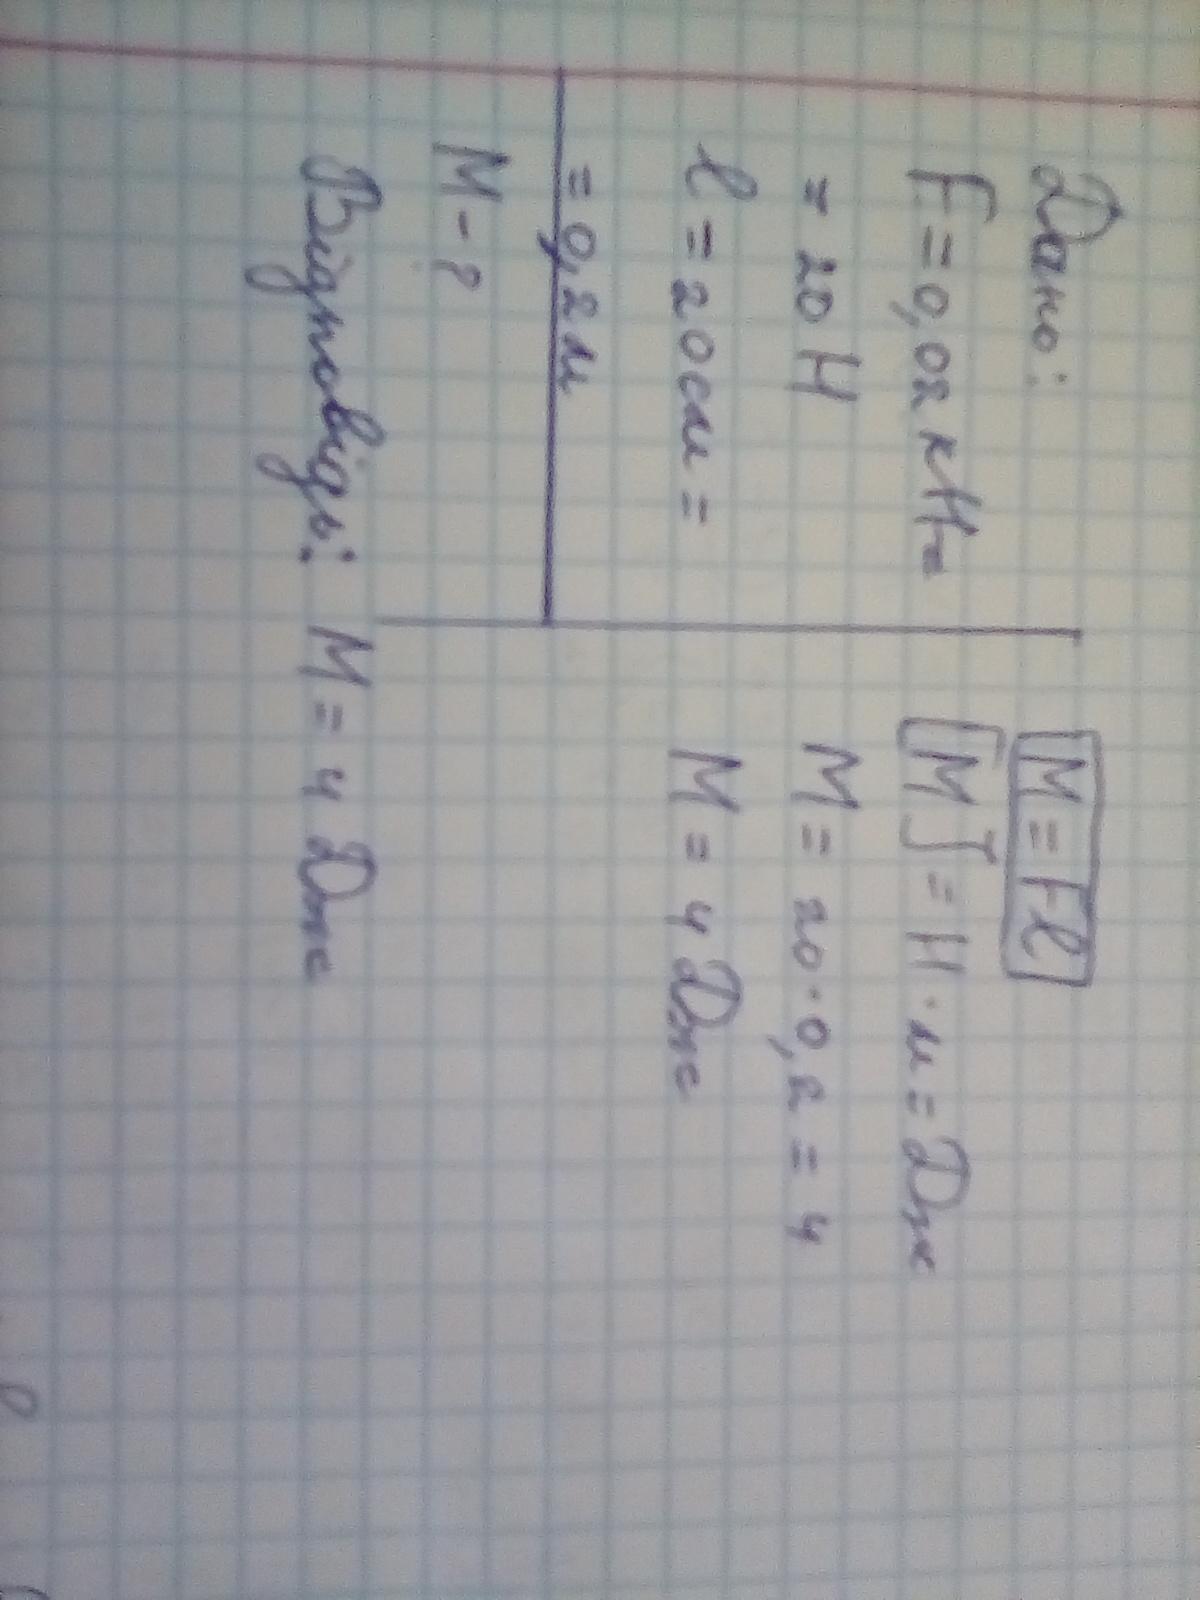 Дано:
F = 0,02 кН =
= 20 Н
l = 20 см =
= 0,2 м
M - ?
M = Fl
[M] = Н · м = Дж
M = 20 · 0,2 = 4
M = 4 Дж
Відповідь: M = 4 Дж